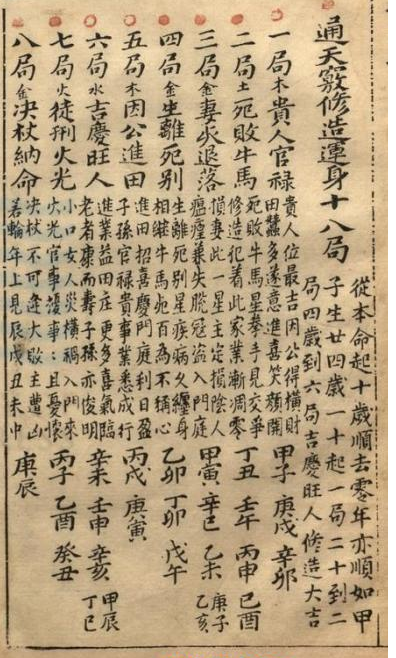 通天竅修造運身十八局
從本命起十歲順去零年亦順如甲
子生廿四歲一十起一局二十到二
局四歲到六局吉慶旺人修造大吉
一局木貴人官禄
貴人位最吉因公得横財
田蠶多遂意進喜笑顏開
甲子 庚戌 辛卯
二局土死敗牛馬
死敗牛馬星拳手見交爭
修造犯着此家業漸凋零
丁丑 壬午 丙申 己酉
三局金妻災退落
損妻此一星主定損陰人
瘟瘴兼失脫冦盗入門庭
甲寅 辛巳 乙未 庚子 乙亥
四局金生離死别
生離死别星疾病久纏身
相牛馬死百為不稱心
乙卯 丁卯 戊午
五局木因公進田
進田招喜慶門庭利日盈
子孫官禄貴事業悉成行
丙戌 庚寅
六局水吉慶旺人
進業益田庄更多喜氣臨
老者康而壽子孫亦俊明
辛未 壬申 辛亥 甲辰 丁巳
七局火徒刑火光
小口女人災横禍入門來
火光官事事:且憂懷
丙子 乙酉 癸丑
八局金决杖納命
决杖不可逢大敗主遭凶
若輪年上見辰戌丑未中
庚辰